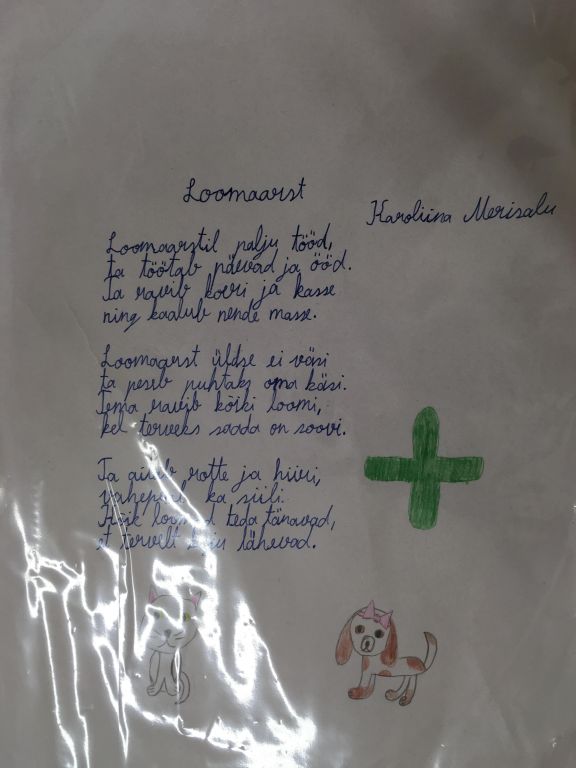 Loomaarst
Karoliina Merisalu
Loomaarstil palju tööd,
ta töötab päevad ja ööd.
Ta ravib koeri ja kasse
ning kaalub nende masse.
Loomaarst üldse ei väsi
ta peseb puhtaks oma käsi.
Tema ravib kõiki loomi,
kel terveks saada on soovi.
Ta aitab rotte ja hiiri,
vahepeal ka siili.
Kõik loomad teda tänavad,
et tervelt koju lähevad.